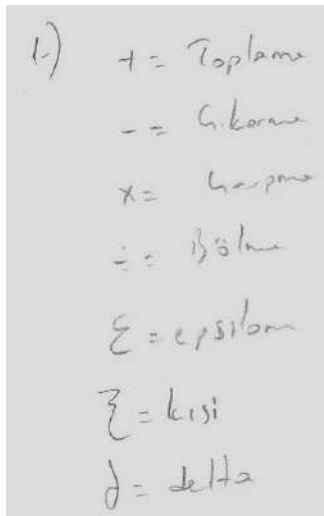 1-) + = Toplama
- = Çıkarma
x = Çarpma
÷ = Bölme
ξ = epsilon
ξ = kısi
∂ = delta